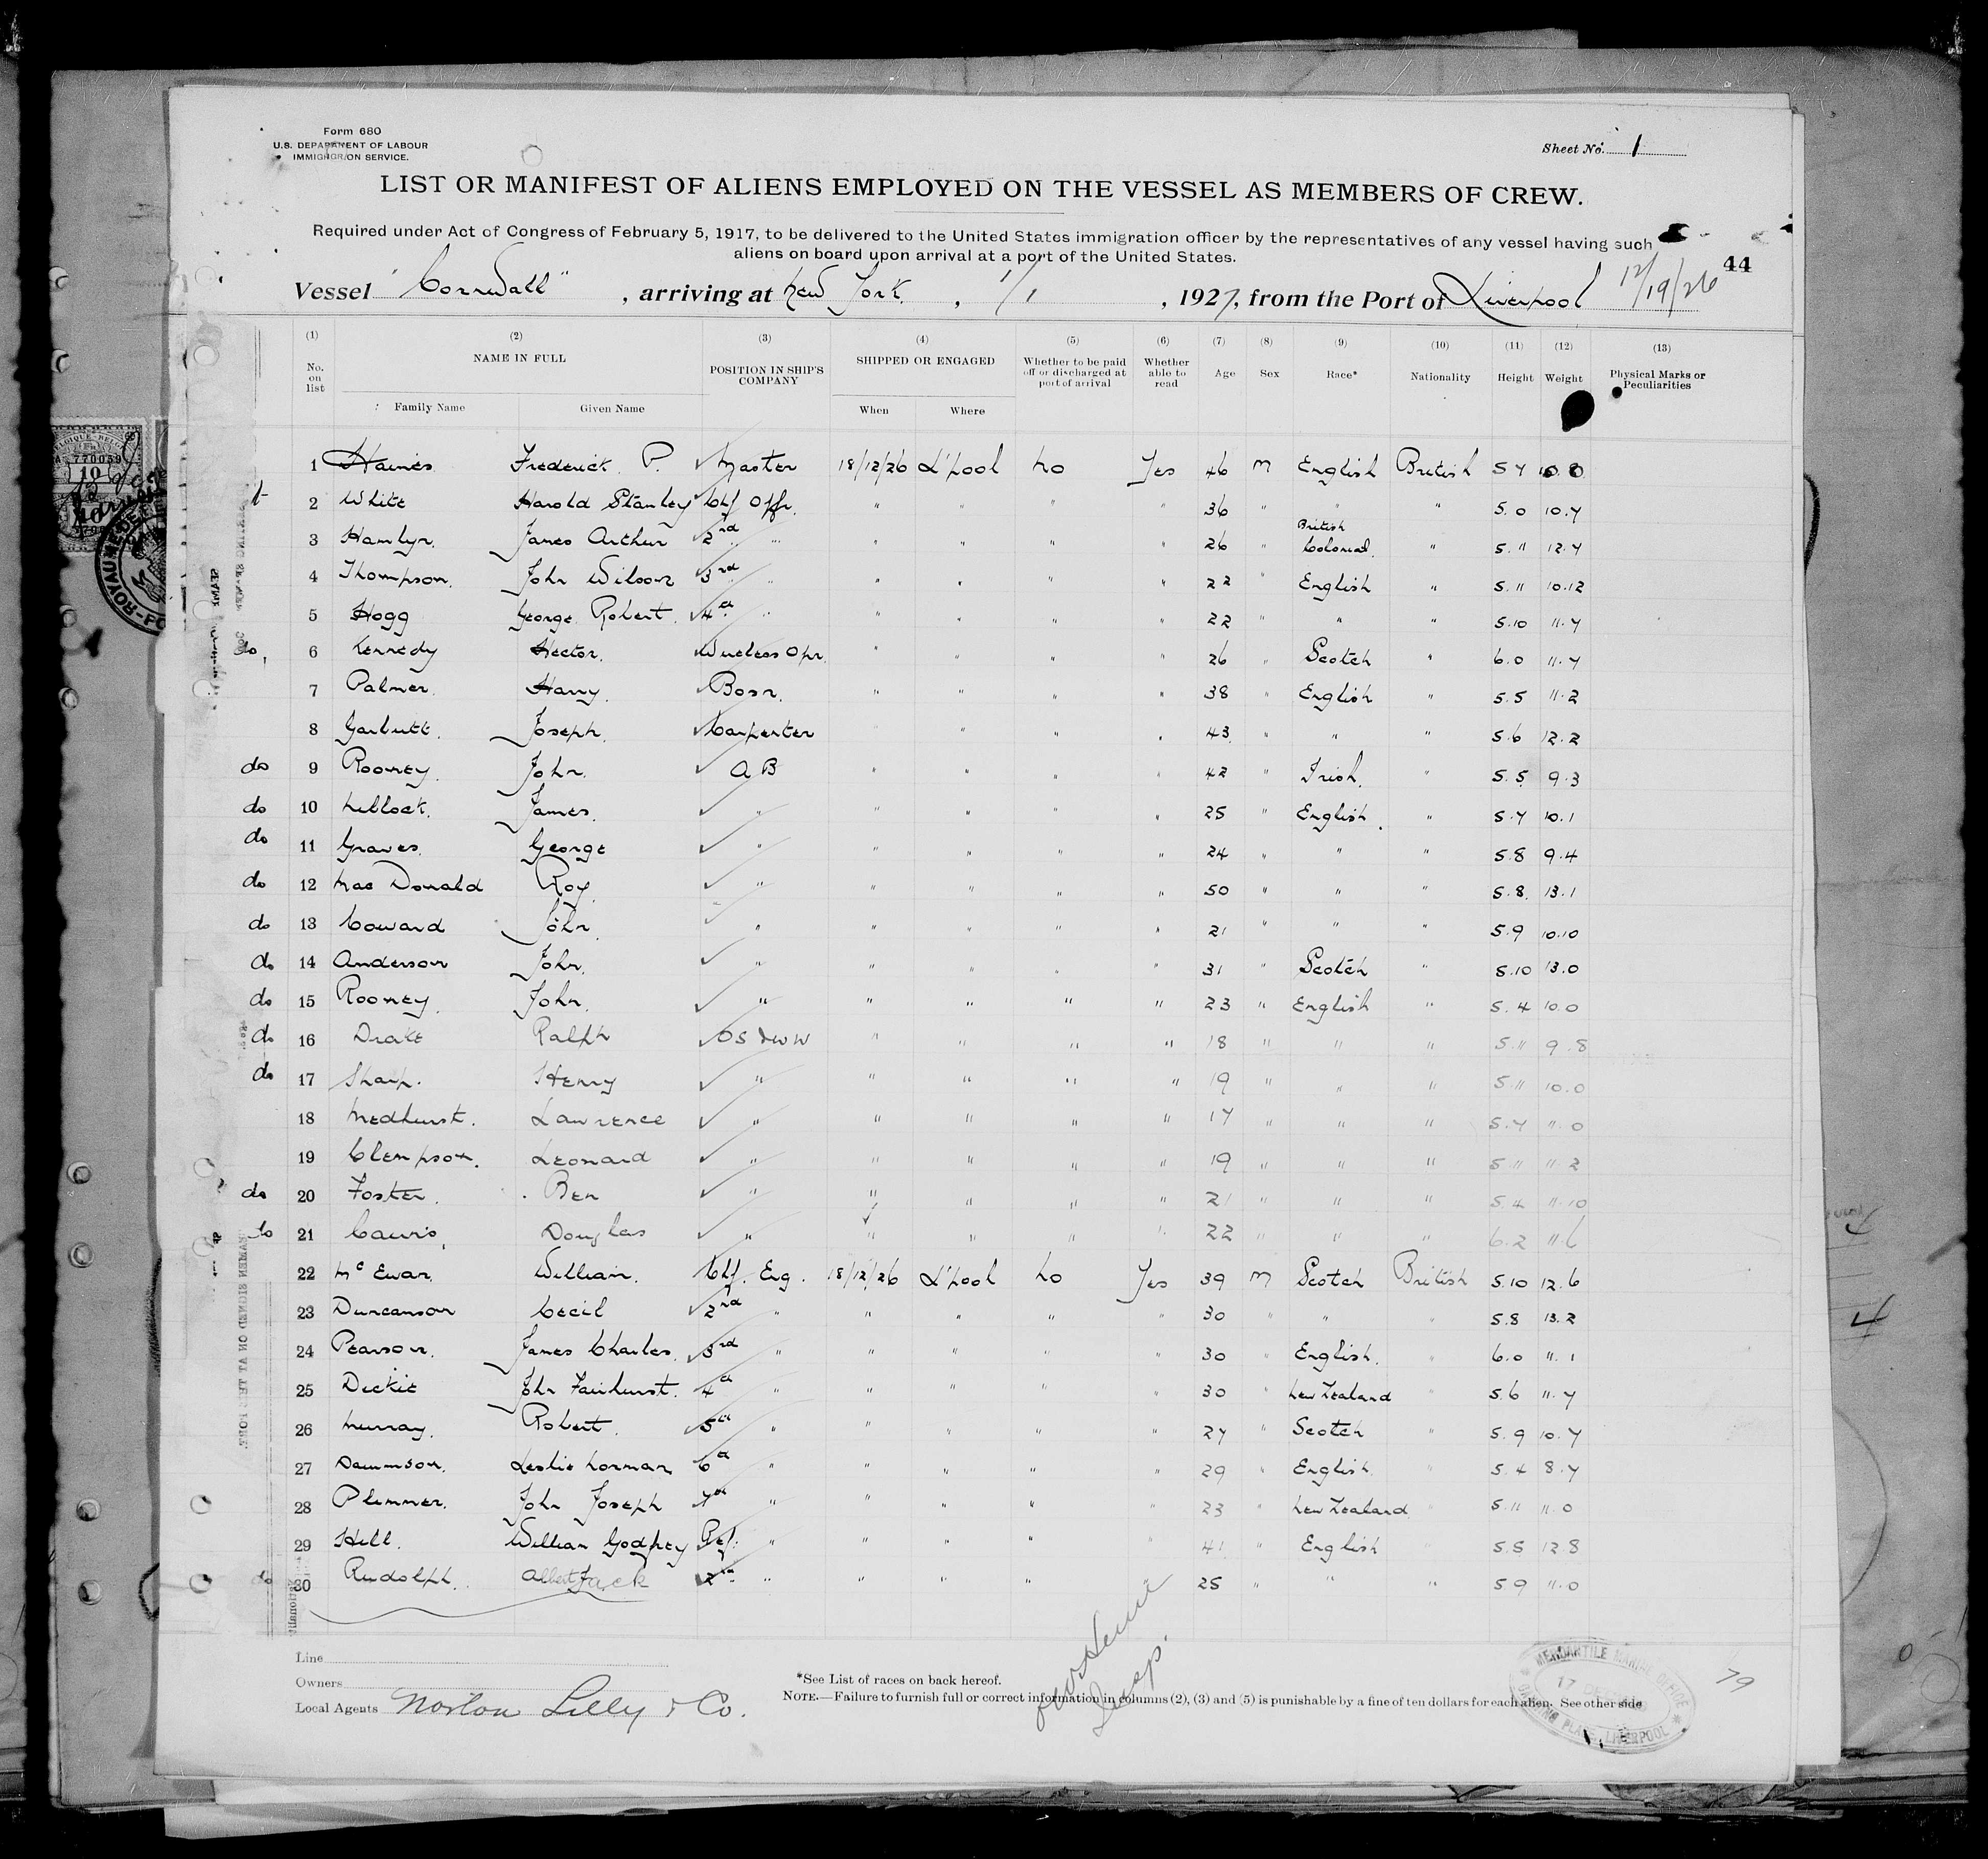 Form 680
U.S. DEPARTMENT OF LABOUR
IMMIGRATION SERVICE.
Sheet No. 1
LIST OR MANIFEST OF ALIENS EMPLOYED ON THE VESSEL AS MEMBERS OF CREW.
Required under Act of Congress of February 5, 1917, to be delivered to the United States immigration officer by the representatives of any vessel having such
aliens on board upon arrival at a port of the United States.
44
Vessel "Cornwall", arriving at New York, 1/1, 1927, from the Port of Liverpool 12/19/26
(1) (2) (3) (4) (5) (6) (7) (8) (9) (10) (11) (12) (13)
No. on list NAME IN FULL POSITION IN SHIP'S COMPANY SHIPPED OR ENGAGED Whether to be paid off or discharged at port of arrival Whether able to read Age Sex Race* Nationality Height Weight Physical Marks or Peculiarities
Family Name Given Name When Where
1 Haines Frederick P. Master 18/12/26 L'pool No Yes 46 M English British 5 7 10.8
2 White Harold Stanley Chf Offr. " " " " 36 " " " 5.0 10.7
3 Hamlyn. James Arthur 2nd " " " " " 26 " British Colonial. " 5.11 12.7
4 Thompson. John Wilson 3rd " " " " " 22 " English " 5.11 10.12
5 Hogg George Robert 4th " " " " " 22 " " " 5.10 11.7
do, 6 Kennedy Hector. Wireless Opr. " " " " 26 " Scotch " 6.0 11.7
7 Palmer. Harry. Bosn. " " " " 38 " English " 5.5 11.2
8 Garbutt. Joseph. Carpenter " " " 43 " " " 5.6 12.2
do 9 Rooney. John. A B " " " " 42 " Irish. " 5.5 9.3
do 10 James. " " " " " 25 " English. " 5.7 10.1
do 11 Graves. George " " " " " 24 " " " 5.8 9.4
do 12 Mac Donald Roy " " " " " 50 " " " 5.8. 13.1
do 13 Coward John " " " " " 21 " " " 5.9 10.10
do 14 Anderson John. " " " " " 31 " Scotch " 5.10 13.0
do 15 Rooney. John. " " " " " 23 " English " 5.4 10.0
do 16 Drake Ralph OS " " " " 18 " " " 5.11 9.8
do 17 Sharp. Henry " " " " " 19 " " " 5.11 10.0
18 Medhurst. Lawrence " " " " " 17 " " " 5.7 11.0
19 Clempson. Leonard " " " " " 19 " " " 5.11 11.2
do 20 Foster. Ben " " " " " 21 " " " 5.4 11.10
do 21 Douglas " " " " " 22 " " " 6.2 11.6
22 Mc Ewan. William. Chf. Eng. 18/12/26 L'pool No Yes 39 M Scotch British 5.10 12.6
23 Duncanson Cecil 2nd " " " " " 30 " " " 5.8 13.2
24 Pearson. James Charles. 3rd " " " " " 30 " English. " 6.0 11.1
25 Dickie John Fairhurst. 4th " " " " 30 " New Zealand " 5.6 11.7
26 Murray. Robert. 5th " " " " " 27 " Scotch " 5.9 10.7
27 Leslie Norman 6th " " " " " 29 " English. " 5.4 8.7
28 Plimmer. John Joseph 7th " " " " " 23 " New Zealand " 5.11 11.0
29 Hill. William Godfrey Ref. " " " " " 41 " English " 5.5 12.8
do 30 Rudolph. Albert Jack 2nd " " " " " 25 " " " 5 9 11.0
Line
Owners
Local Agents Norton Lilly & Co.
*See List of races on back hereof.
NOTE.—Failure to furnish full or correct information in columns (2), (3) and (5) is punishable by a fine of ten dollars for each alien. See other side
MERCANTILE MARINE OFFICE
17 DEC
CANNING PLACE, LIVERPOOL
79